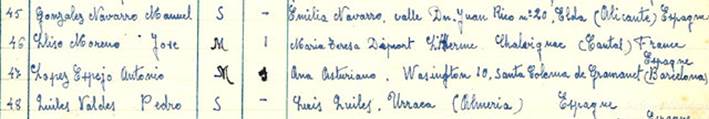 45 Gonzales Navarro Manuel S - Emilia Navarro, valle Dn. Juan Rico nº 20, Elda (Alicante) Espagne
46 Lliso Moreno Jose M 1 Maria Teresa Déport Chalvignac (Cantal) France
47 Lopez Espejo Antonio M 1 Ana Asturiano, Wasington 10, Santa Coloma de Gramanet (Barcelona) Espagne
48 Quiles Valdes Pedro S - Luis Quiles, Urraca (Almeria) Espagne
Espagne